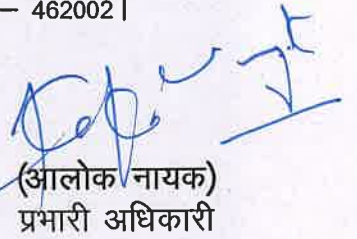 – 462002।
(आलोक नायक)
प्रभारी अधिकारी